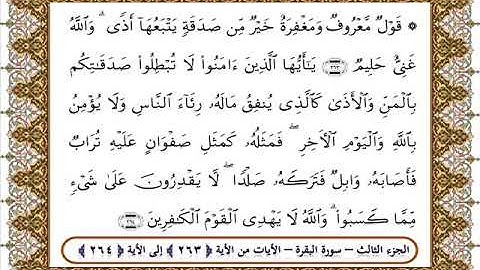 ۞ قَوْلٌ مَّعْرُوفٌ وَمَغْفِرَةٌ خَيْرٌ مِّن صَدَقَةٍ يَتْبَعُهَآ أَذًى ۗ وَٱللَّهُ
غَنِىٌّ حَلِيمٌ ﴿٢٦٣﴾ يَـٰٓأَيُّهَا ٱلَّذِينَ ءَامَنُوا۟ لَا تُبْطِلُوا۟ صَدَقَـٰتِكُم
بِٱلْمَنِّ وَٱلْأَذَىٰ كَٱلَّذِى يُنفِقُ مَالَهُۥ رِئَآءَ ٱلنَّاسِ وَلَا يُؤْمِنُ
بِٱللَّهِ وَٱلْيَوْمِ ٱلْـَٔاخِرِ ۖ فَمَثَلُهُۥ كَمَثَلِ صَفْوَانٍ عَلَيْهِ تُرَابٌ
فَأَصَابَهُۥ وَابِلٌ فَتَرَكَهُۥ صَلْدًا ۖ لَّا يَقْدِرُونَ عَلَىٰ شَىْءٍ
مِّمَّا كَسَبُوا۟ ۗ وَٱللَّهُ لَا يَهْدِى ٱلْقَوْمَ ٱلْكَـٰفِرِينَ ﴿٢٦٤﴾
الجزء الثالث – سورة البقرة – الآيات من الآية ﴿٢٦٣﴾ إلى الآية ﴿٢٦٤﴾